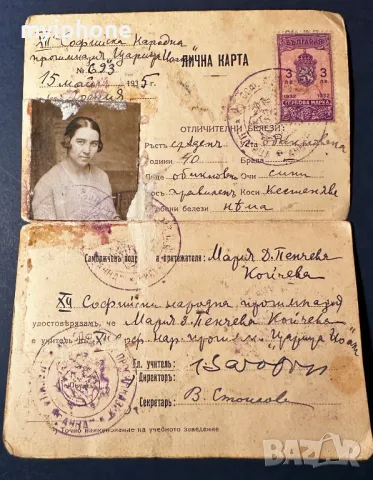 XII Софийска Народна
прогимназия "Царица Иоанна"
№ 623
15 май 1935
София
ЛИЧНА КАРТА
БЪЛГАРИЯ
3 3
ЛВ. ЛВ.
1932 1932
ГЕРБОВА МАРКА
ОТЛИЧИТЕЛНИ БЕЛЕЗИ:
Ръстъ среденъ Уста обикновена
Години 40 Брада
Лице обикновено Очи сини
Носъ правиленъ Коси Кестеняви
белези нѣма
Саморъченъ притежателя: Мария Д. Пенчева
Койчева
XII Софийска народна прогимназия
удостовѣрява, че Мария Д. Пенчева Койчева
е учител XII нар. прогимн. "Царица Иоанна"
Гл. учитель:
Директоръ:
Секретарь: В. Стоилова
Точно наименование на учебното заведение
bazar.bg